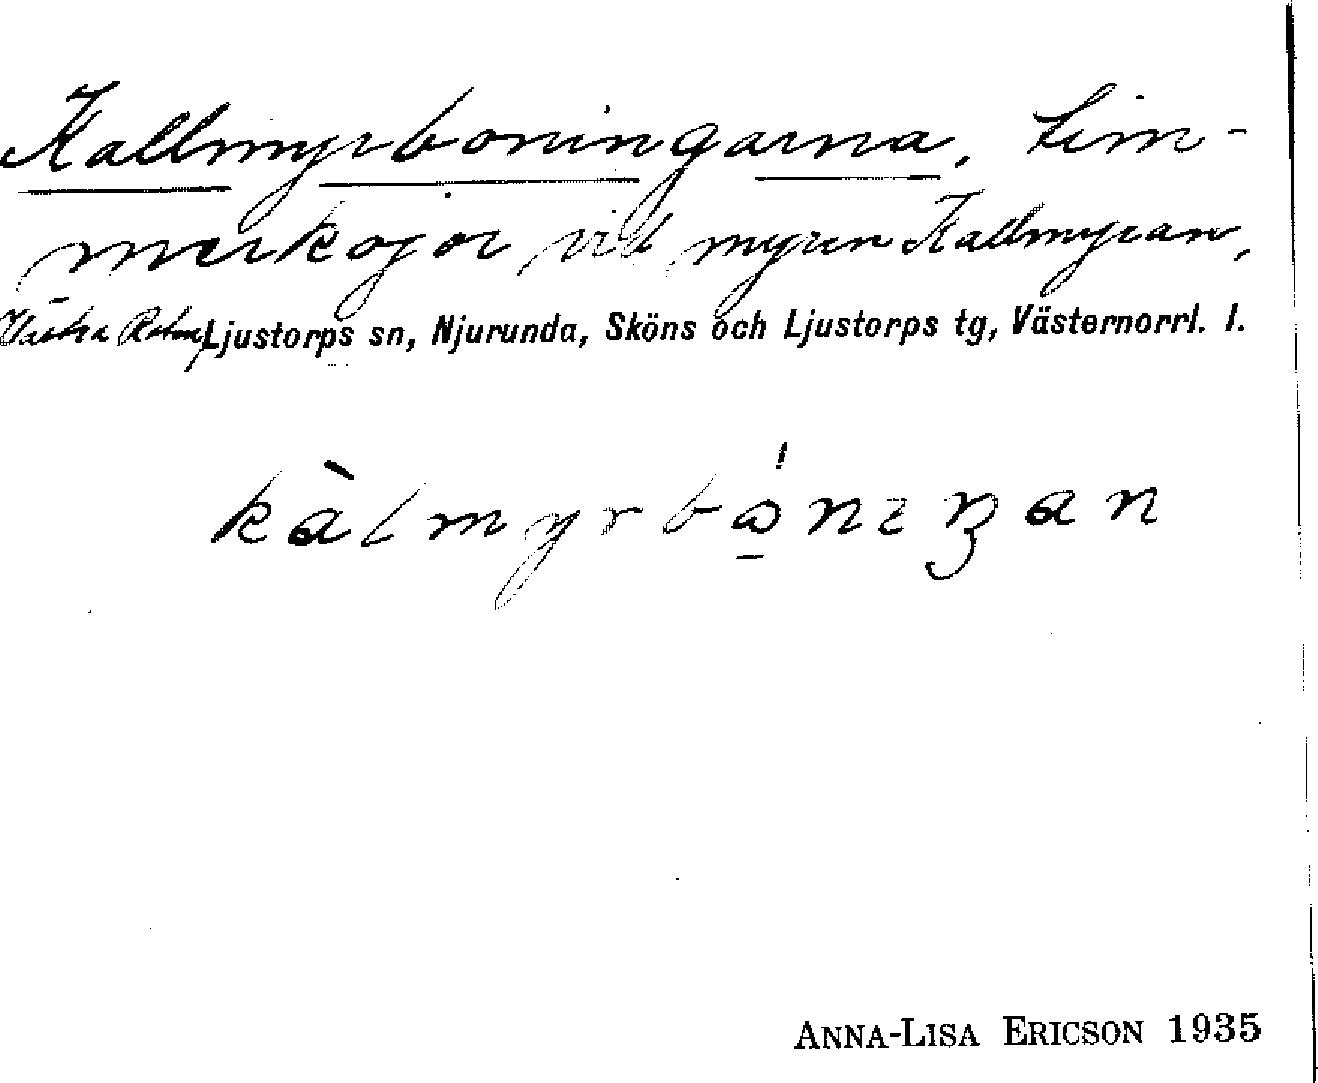 Kallmyrboningarna, tim-
merkojor vid myren Kallmyran,
Västra Ljustorps sn, Njurunda, Sköns och Ljustorps tg, Västernorrl. l.
ANNA-LISA ERICSON 1935